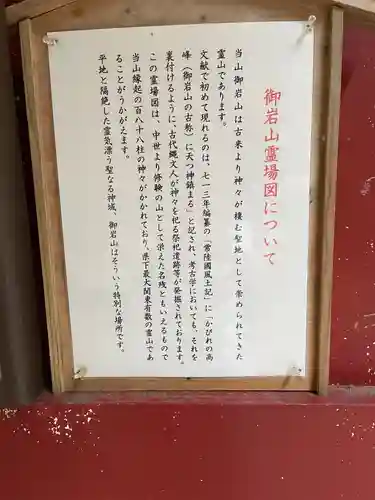 御岩山霊場図について
当山御岩山は古来より神々が棲む聖地として崇められてきた
霊山であります。
文献で初めて現れるのは、七一三年編纂の「常陸國風土記」に「かびれの高
峰（御岩山の古称）に天つ神鎮まる」と記され、考古学においても、それを
裏付けるように、古代縄文人が神々を祀る祭祀遺跡等が発掘されております。
この霊場図は、中世より修験の山として栄えた名残ともいえるもので
当山縁起の百八十八柱の神々がかかれており、県下最大関東有数の霊山であ
ることがうかがえます。
平地と隔絶した霊気漂う聖なる神域、御岩山はそういう特別な場所です。